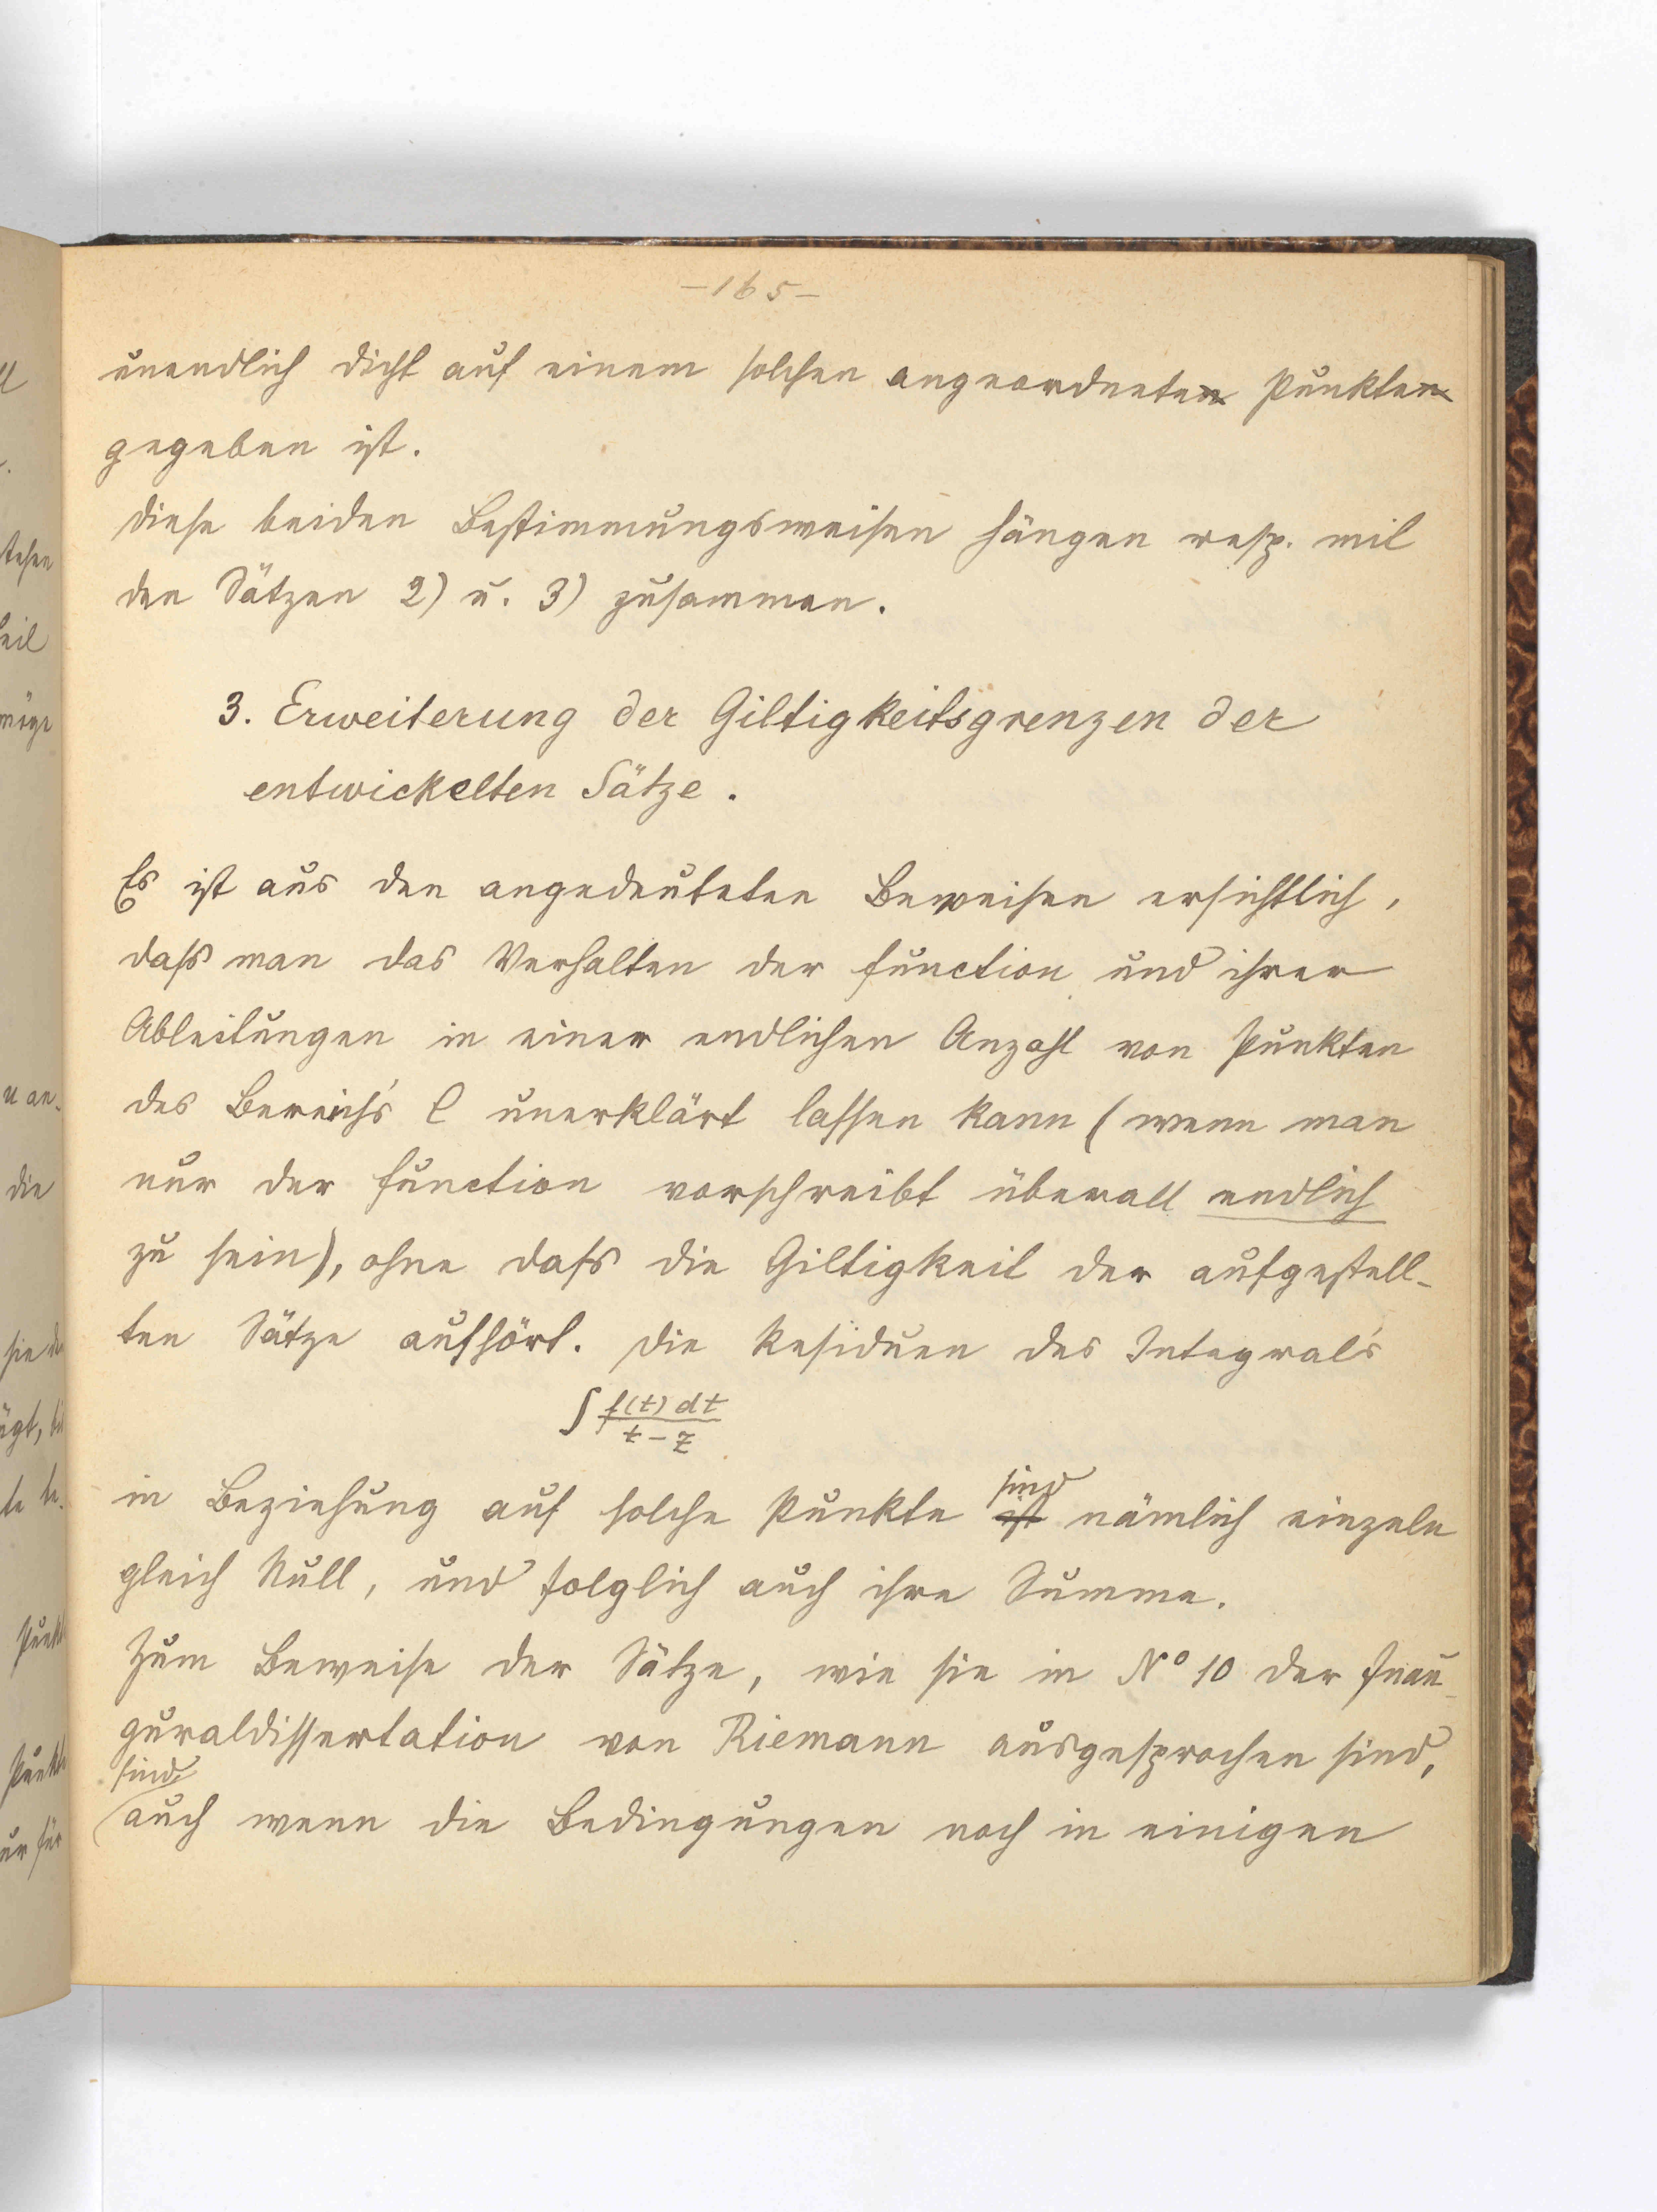 -165-
unendlich dicht auf einem solchen angeordneten Punkten
gegeben ist.
Diese beiden Bestimmungsweisen hängen resp. mit
den Sätzen 2) u. 3) zusammen.
3. Erweiterung der Giltigkeitsgrenzen der
entwickelten Sätze.
Es ist aus den angedeuteten Beweisen ersichtlich,
daß man das Verhalten der Function und ihrer
Ableitungen in einer endlichen Anzahl von Punkten
des Bereich's C unerklärt lassen kann (wenn man
nur der Function vorschreibt überall endlich
zu sein), ohne daß die Giltigkeit der aufgestell-
ten Sätze aufhört. Die Residuen des Integral's
∫ f(t) dt / t-z
in Beziehung auf solche Punkte ist sind nämlich einzeln
gleich Null, und folglich auch ihre Summe.
Zum Beweise der Sätze, wie sie in No 10 der Inau-
guraldissertation von Riemann ausgesprochen sind,
sind
auch wenn die Bedingungen noch in einigen